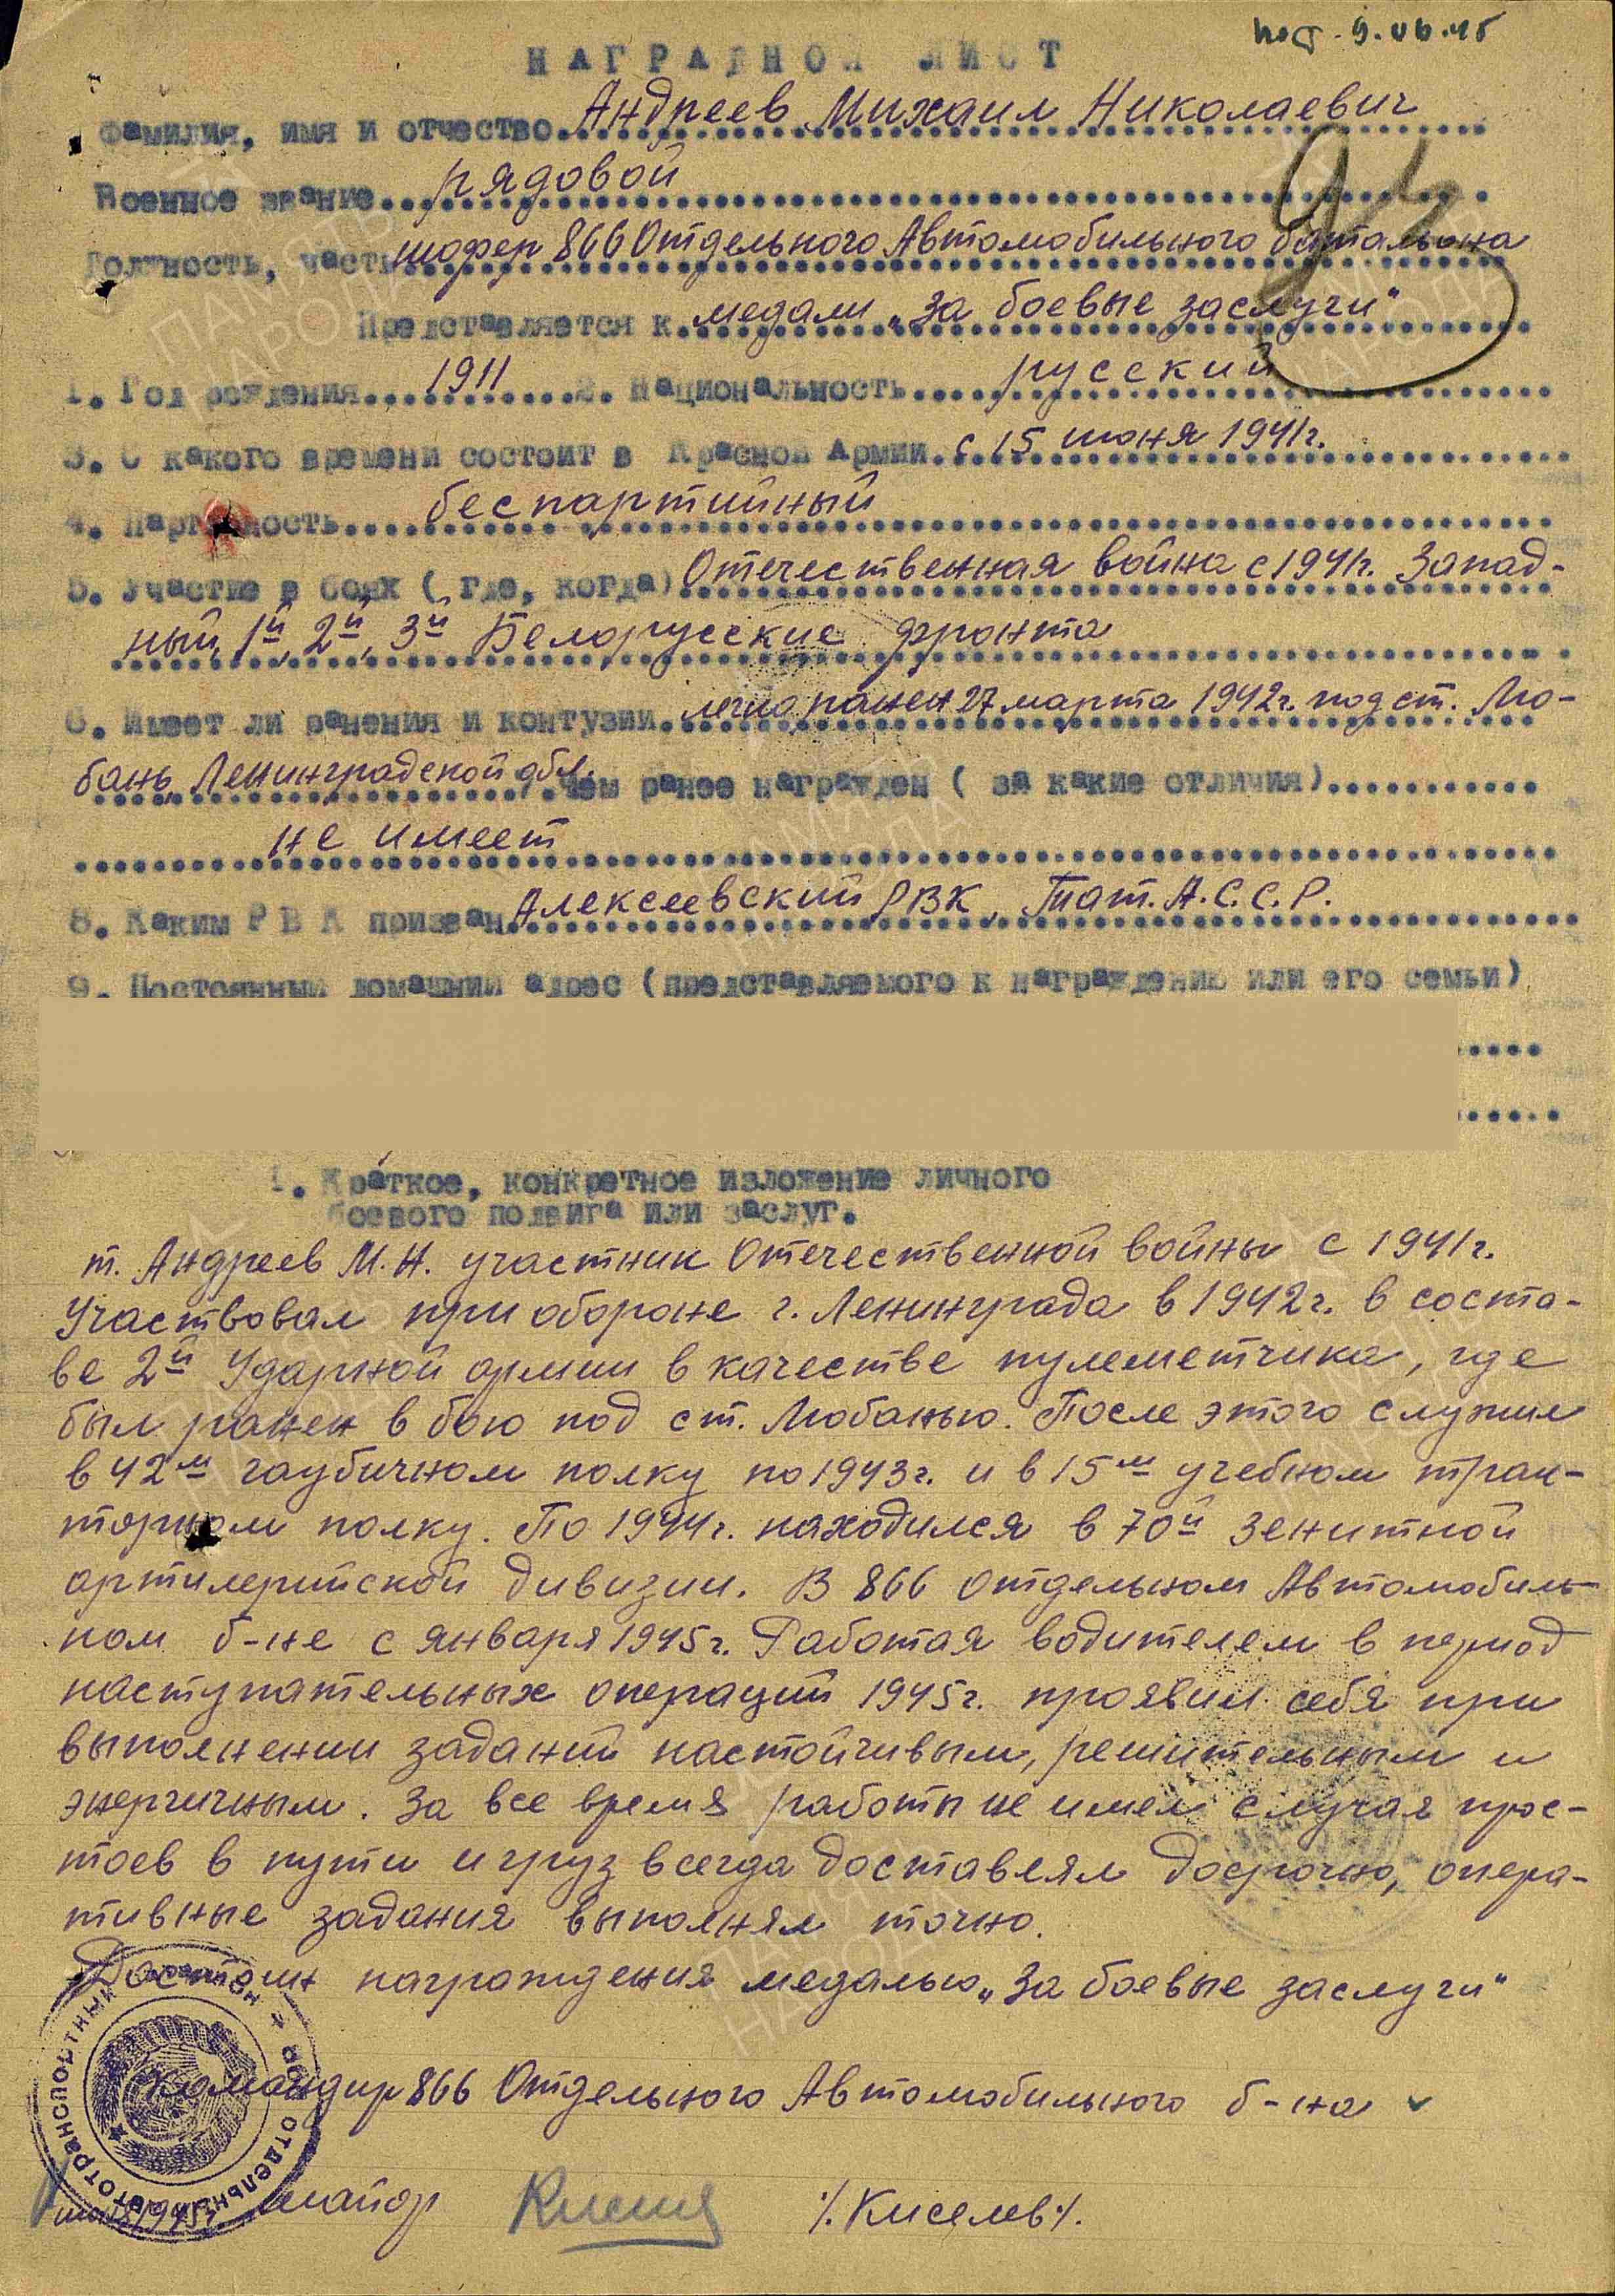 9.06.45
НАГРАДНОЙ ЛИСТ
Фамилия, имя и отчество Андреев Михаил Николаевич
Военное звание рядовой
Должность, часть шофер 866 Отдельного Автомобильного батальона
Представляется к медали „За боевые заслуги"
1. Год рождения 1911 2. Национальность русский
3. С какого времени состоит в Красной Армии с 15 июня 1941г.
4. Партийность беспартийный
5. Участие в боях (где, когда) Отечественная война с 1941г. Запад-
ный, 1й, 2й, 3й Белорусские фронта
6. Имеет ли ранения и контузии легко ранен 27 марта 1942г. под ст. Лю-
бань, Ленинградской обл. 7. Чем ранее награжден (за какие отличия)
не имеет
8. Каким РВК призван Алексеевский РВК, Тат. А.С.С.Р.
9. Постоянный домашний адрес (представляемого к награждению или его семьи)
1. Краткое, конкретное изложение личного
боевого подвига или заслуг.
т. Андреев М.Н. участник Отечественной войны с 1941г.
Участвовал при обороне г. Ленинграда в 1942г. в соста-
ве 2й Ударной армии в качестве пулеметчика, где
был ранен в бою под ст. Любанью. После этого служил
в 42м гаубичном полку по 1943г. и в 15м учебном трак-
торном полку. По 1944г. находился в 70й зенитной
артилерийской дивизии. В 866 отдельном Автомобиль-
ном б-не с января 1945г. Работая водителем в период
наступательных операций 1945г. проявил себя при
выполнении заданий настойчивым, решительным и
энергичным. За все время работы не имел случая прос-
тоев в пути и груз всегда доставлял досрочно, опера-
тивные задания выполнял точно.
Достоин награждения медалью „За боевые заслуги"
Командир 866 Отдельного Автомобильного б-на
майор /Киселев/.